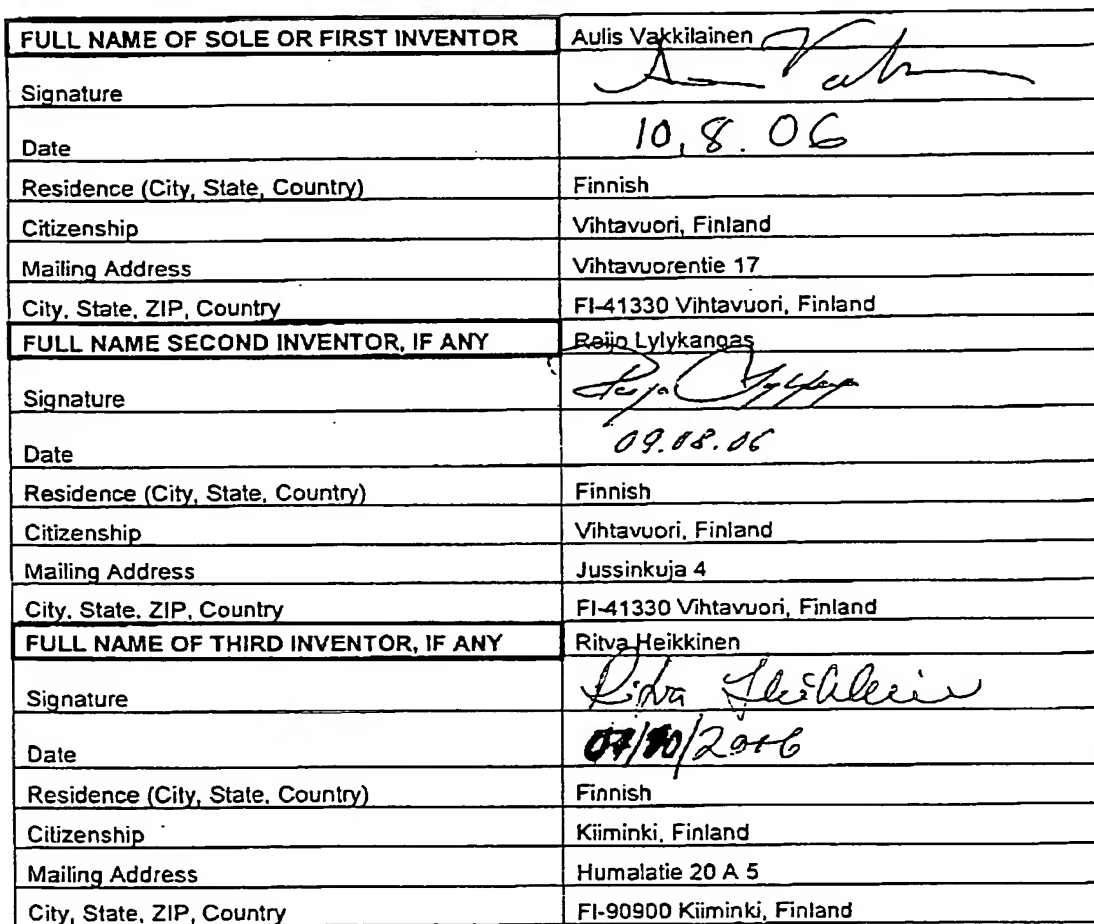 FULL NAME OF SOLE OR FIRST INVENTOR Aulis Vakkilainen
Signature
Date 10.8.06
Residence (City, State, Country) Finnish
Citizenship Vihtavuori, Finland
Mailing Address Vihtavuorentie 17
City, State, ZIP, Country FI-41330 Vihtavuori, Finland
FULL NAME SECOND INVENTOR, IF ANY Reijo Lylykangas
Signature
Date 09.08.06
Residence (City, State, Country) Finnish
Citizenship Vihtavuori, Finland
Mailing Address Jussinkuja 4
City, State, ZIP, Country FI-41330 Vihtavuori, Finland
FULL NAME OF THIRD INVENTOR, IF ANY Ritva Heikkinen
Signature Ritva Heikkinen
Date
Residence (City, State, Country) Finnish
Citizenship Kiiminki, Finland
Mailing Address Humalatie 20 A 5
City, State, ZIP, Country FI-90900 Kiiminki, Finland